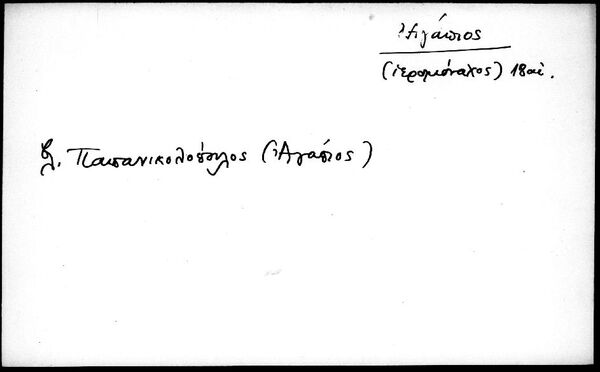 Ἀγάπιος
(ἱερομόναχος) 18αἰ.
βλ. Παπανικολόπουλος (Ἀγάπιος)